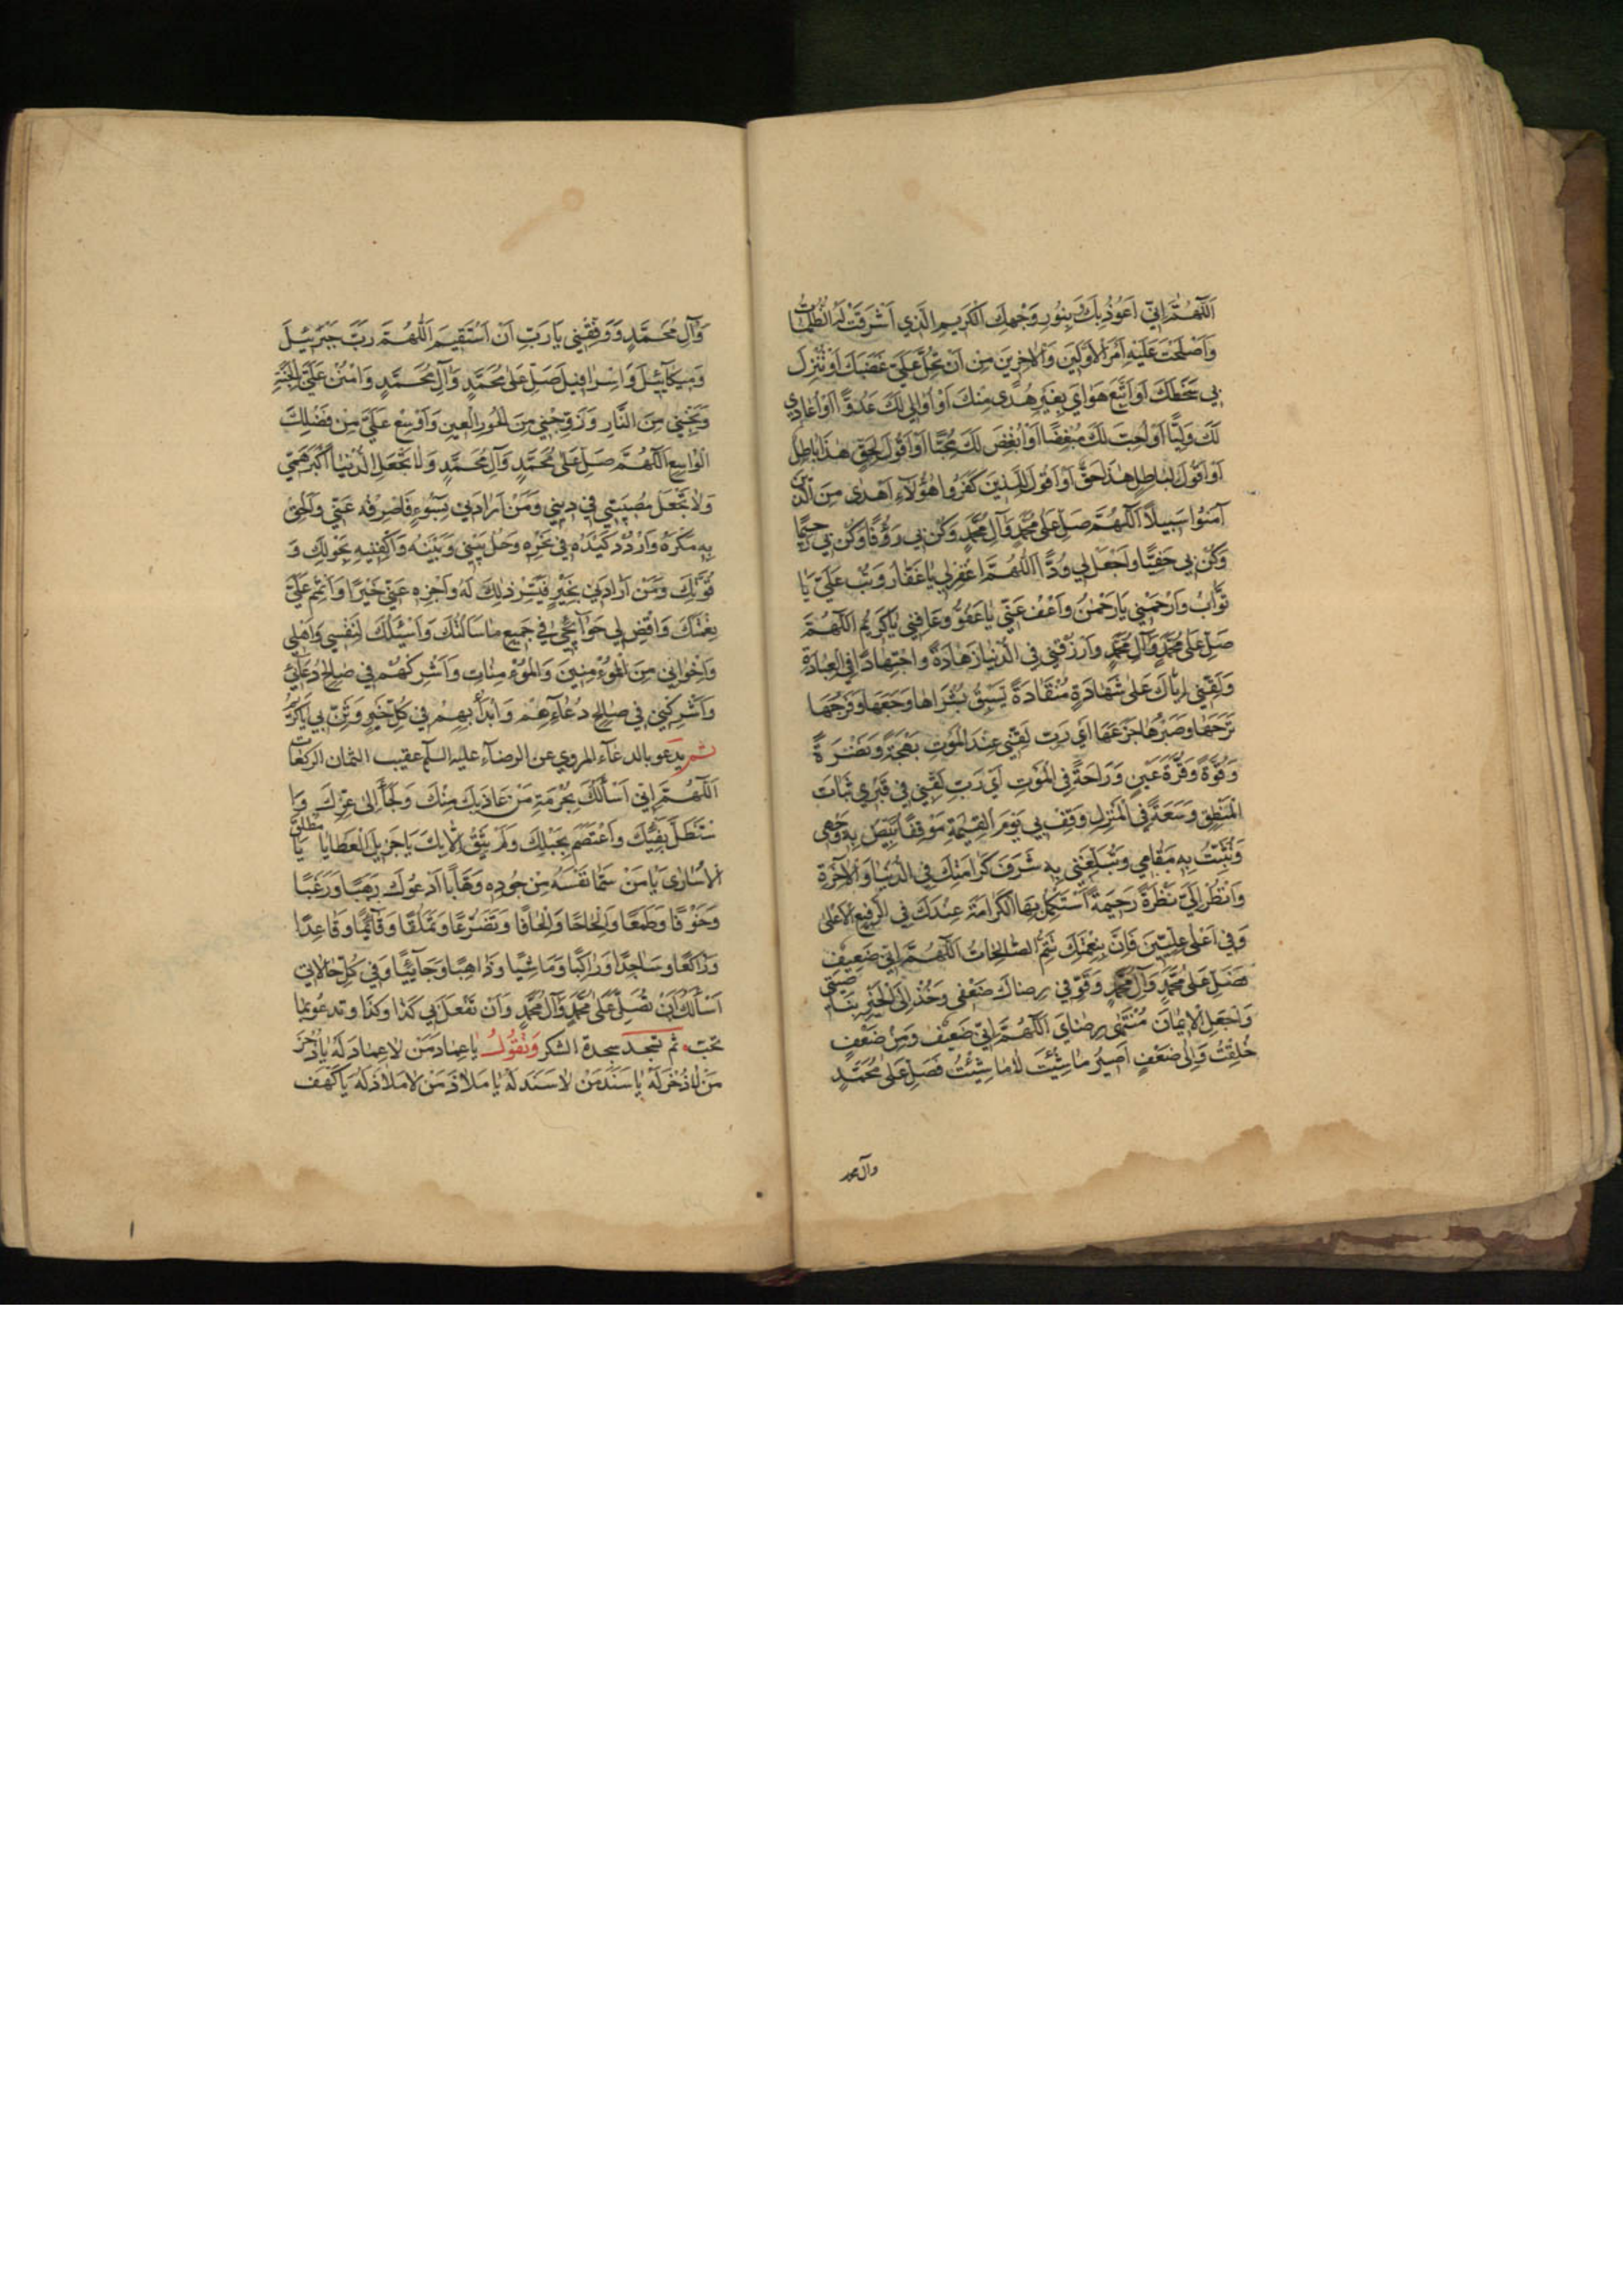 اَللّهُمَّ اِنّي اَعُوذُ بِكَ وَ بِنُورِ وَجْهِكَ الْكَريمِ الَّذي اَشْرَقَتْ لَهُ الظُّلُماتُ
وَاَصْلَحْتَ عَلَيْهِ اَمْرَ الْاَوَّلينَ وَالْاخِرينَ مِنْ اَنْ تَحُلَّ عَلَيَّ غَضَبَكَ اَوْ تُنْزِلَ
بي سَخَطَكَ اَوْ اَتَّبِعَ هَوايَ بِغَيْرِ هُدًى مِنْكَ اَوْ اُوالِيَ لَكَ عَدُوًّا اَوْ اُعادِيَ
لَكَ وَلِيًّا اَوْ اُحِبَّ لَكَ مُبْغِضًا اَوْ اُبْغِضَ لَكَ مُحِبًّا اَوْ اَقُولَ لِحَقٍّ هٰذا باطِلٌ
اَوْ اَقُولَ لِباطِلٍ هٰذا حَقٌّ اَوْ اَقُولَ لِلَّذينَ كَفَرُوا هٰؤُلاءِ اَهْدٰى مِنَ الَّذينَ
آمَنُوا سَبيلًا اَللّهُمَّ صَلِّ عَلٰى مُحَمَّدٍ وَآلِ مُحَمَّدٍ وَكُنْ بي رَؤُفًا وَكُنْ بي رَحيمًا
وَكُنْ بي حَفِيًّا وَاجْعَلْ لي وُدًّا اَللّهُمَّ اغْفِرْ لي يا غَفّارُ وَتُبْ عَلَيَّ يا
تَوّابُ وَارْحَمْني يا رَحْمٰنُ وَاعْفُ عَنّي يا عَفُوُّ وَعافِني يا كَريمُ اَللّهُمَّ
صَلِّ عَلٰى مُحَمَّدٍ وَآلِ مُحَمَّدٍ وَارْزُقْني فِي الدُّنْيا زَهادَةً وَاجْتِهادًا فِي الْعِبادَةِ
وَلَقِّني اِيّاكَ عَلٰى شَهادَةٍ مُنْقادَةٍ تَسْبِقُ بُشْراها وَجَعَها وَفَرَحُها
تَرَحَها وَصَبْرُها جَزَعَها اَيْ رَبِّ لَقِّني عِنْدَ الْمَوْتِ بَهْجَةً وَنَضْرَةً
وَقُوَّةً وَقُرَّةَ عَيْنٍ وَراحَةً فِي الْمَوْتِ اَيْ رَبِّ لَقِّني في قَبْري ثَباتَ
الْمَنْطِقِ وَسَعَةً فِي الْمَنْزِلِ وَقِفْ بي يَوْمَ الْقِيٰمَةِ مَوْقِفًا تُبَيِّضُ بِهِ وَجْهي
وَتُثَبِّتُ بِهِ مَقامي وَتُبَلِّغُني بِهِ شَرَفَ كَرامَتِكَ فِي الدُّنْيا وَالْآخِرَةِ
وَانْظُرْ اِلَيَّ نَظْرَةً رَحيمَةً اَسْتَكْمِلُ بِهَا الْكَرامَةَ عِنْدَكَ فِي الرَّفيعِ الْاَعْلٰى
وَفي اَعْلٰى عِلِّيّينَ فَاِنَّ بِنِعْمَتِكَ تَتِمُّ الصّالِحاتُ اَللّهُمَّ اِنّي ضَعيفٌ
فَصَلِّ عَلٰى مُحَمَّدٍ وَآلِ مُحَمَّدٍ وَقَوِّ في رِضاكَ ضَعْفي وَخُذْ اِلَى الْخَيْرِ بِناصِيَتي
وَاجْعَلِ الْاِيْمانَ مُنْتَهٰى رِضايَ اَللّهُمَّ اِنّي ضَعيفٌ وَمِنْ ضَعْفٍ
خُلِقْتُ وَاِلٰى ضَعْفٍ اَصيرُ ما شِئْتَ لا ما شِئْتُ فَصَلِّ عَلٰى مُحَمَّدٍ
وآل محمد
وَآلِ مُحَمَّدٍ وَوَفِّقْني يا رَبِّ اَنْ اَسْتَقيمَ اَللّهُمَّ رَبَّ جَبْرَئيلَ
وَميكآئيلَ وَاِسْرافيلَ صَلِّ عَلٰى مُحَمَّدٍ وَآلِ مُحَمَّدٍ وَامْنُنْ عَلَيَّ بِالْجَنَّةِ
وَنَجِّني مِنَ النّارِ وَزَوِّجْني مِنَ الْحُورِ الْعينِ وَاَوْسِعْ عَلَيَّ مِنْ فَضْلِكَ
الْواسِعِ اَللّهُمَّ صَلِّ عَلٰى مُحَمَّدٍ وَآلِ مُحَمَّدٍ وَلا تَجْعَلِ الدُّنْيا اَكْبَرَ هَمّي
وَلا تَجْعَلْ مُصيبَتي في ديني وَمَنْ اَرادَني بِسُوءٍ فَاصْرِفْهُ عَنّي وَاَلْحِقْ
بِهِ مَكْرَهُ وَارْدُدْ كَيْدَهُ في نَحْرِهِ وَحُلْ بَيْني وَبَيْنَهُ وَاكْفِنيهِ بِحَوْلِكَ وَ
قُوَّتِكَ وَمَنْ اَرادَني بِخَيْرٍ فَيَسِّرْ ذٰلِكَ لَهُ وَاجْزِهِ عَنّي خَيْرًا وَاَتْمِمْ عَلَيَّ
نِعْمَتَكَ وَاقْضِ لي حَوآئِجي في جَميعِ ما سَاَلْتُكَ وَاَسْئَلُكَ لِنَفْسي وَاَهْلي
وَاِخْواني مِنَ الْمُؤْمِنينَ وَالْمُؤْمِناتِ وَاَشْرِكْهُمْ في صالِحِ دُعآئي
وَاَشْرِكْني في صالِحِ دُعآءِهِمْ وَابْدَأْ بِهِمْ في كُلِّ خَيْرٍ وَثَنِّ بي يا كَريمُ
ثم يدعو بالدعآء المروي عن الرضآء عليه السلم عقيب الثمان الركعات
اَللّهُمَّ اِنّي اَسْأَلُكَ بِحُرْمَةِ مَنْ عاذَ بِكَ مِنْكَ وَلَجَأَ اِلٰى عِزِّكَ وَا
سْتَظَلَّ بِفَيْئِكَ وَاعْتَصَمَ بِحَبْلِكَ وَلَمْ يَثِقْ اِلّا بِكَ يا جَزيلَ الْعَطايا يا مُطْلِقَ
الْاُسارٰى يا مَنْ سَمّا نَفْسَهُ مِنْ جُودِهِ وَهّابًا اَدْعُوكَ رَهَبًا وَرَغَبًا
وَخَوْفًا وَطَمَعًا وَاِلْحاحًا وَاِلْحافًا وَتَضَرُّعًا وَتَمَلُّقًا وَقآئِمًا وَقاعِدًا
وَراكِعًا وَساجِدًا وَراكِبًا وَماشِيًا وَذاهِبًا وَجآئِيًا وَفي كُلِّ حالاتي
اَسْأَلُكَ اَنْ تُصَلِّيَ عَلٰى مُحَمَّدٍ وَآلِ مُحَمَّدٍ وَاَنْ تَفْعَلَ بي كَذا وَكَذا وتدعو بما
تحبّ ثم تسجد سجدة الشكر وَتَقُولُ يا عِمادَ مَنْ لا عِمادَ لَهُ يا ذُخْرَ
مَنْ لا ذُخْرَ لَهُ يا سَنَدَ مَنْ لا سَنَدَ لَهُ يا مَلاذَ مَنْ لا مَلاذَ لَهُ يا كَهْفَ